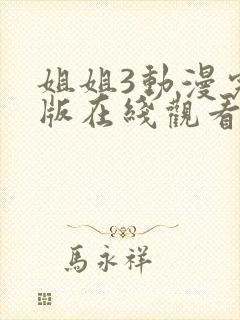 姐姐3動漫
版在綫觀看
馬永祥